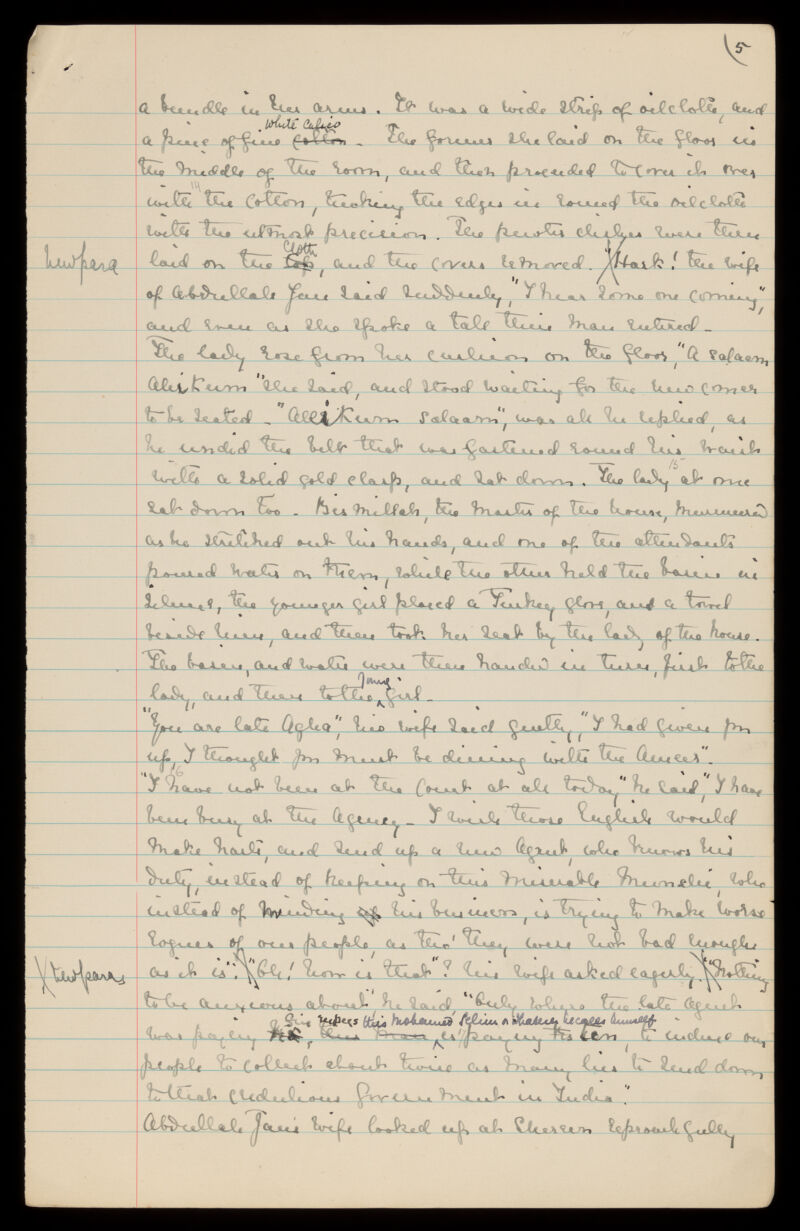 5
a bundle in her arms. It was a wide strip of oilcloth, and
white calico
a piece of fine cotton. The former she laid on the floor in
the middle of the room, and then proceeded to cover it over
with the cotton, tucking the edges in round the oilcloth
with the utmost precision. The pewter dishes were then
cloth
New para
laid on the, and the covers removed. Hark! the wife
of Abdullah Jan said suddenly, "I hear some one coming",
and even as she spoke a tall thin man entered.
The lady rose from her cushion on the floor, "A salaam
Alikum" she said, and stood waiting for the new comer
to be seated. "Alikum salaam", was all he replied, as
he undid the belt that was fastened round his waist
15
with a solid gold clasp, and sat down. The lady at once
sat down too. Bismillah, the master of the house, murmured
as he stretched out his hands, and one of the attendants
poured water on them, while the other held the basin in
silence, the younger girl placed a Turkey glove, and a towel
beside him, and then took her seat by the lady of the house.
The basin, and water were then handed in turn, first to the
young
lady, and then to the girl.
"You are late Agha", his wife said gently, "I had given you
up, I thought you must be dining with the Ameer".
16
"I have not been at the Court at all today" he said, "I have
been busy at the Agency. I wish those English would
make haste, and send up a new Agent, who knows his
duty, instead of keeping on this miserable Munshi, who
instead of minding his business, is trying to make worse
rogues of our people, as tho' they were not bad enough
New paras
as it is". "Oh! how is that"? his wife asked eagerly. "Nothing
to be anxious about" he said, "Only where the late Agent
five rupees this Mohamed Selim or whatever he calls himself
was paying, this man is paying ten, to induce our
people to collect about twice as many lies to send down
to that credulous Government in India".
Abdullah Jan's wife looked up at Shereen reproachfully